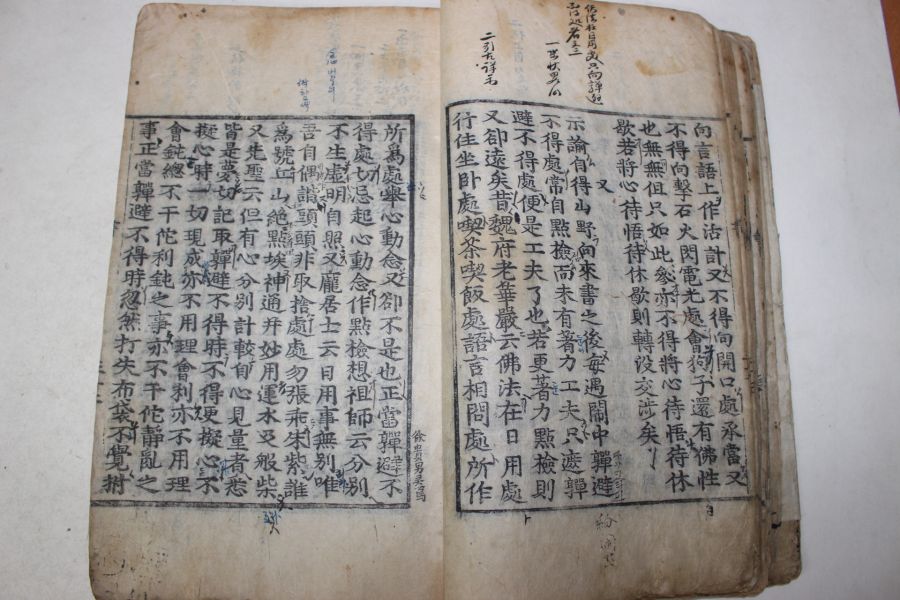 二引古詳示
向言語上作活計又不得向開口處承當又
不得向擊石火閃電光處會狗子還有佛性
也無無但只如此參亦不得將心待悟待休
歇若將心待悟待休歇則轉沒交涉矣
又
示諭自得山野向來書之後每遇閙中嚲避
不得處常自點檢而未有著力工夫只遮嚲
避不得處便是工夫了也若更著力點檢則
又卻遠矣昔魏府老華嚴云佛法在日用處
行住坐卧處喫茶喫飯處語言相問處所作
所爲處舉心動念又卻不是也正當嚲避不
得處切忌起心動念作點檢想祖師云分別
不生虛明自照又龐居士云日用事無別唯
吾自偶諧頭頭非取捨處處勿張乖朱紫誰
爲號丘山絶點埃神通幷妙用運水及般柴
又先聖云但有心分別計較自心見量者悉
皆是夢切記取嚲避不得時不得更擬心不
擬心時一切現成亦不用理會利亦不用理
會鈍總不干佗利鈍之事亦不干佗靜亂之
事正當嚲避不得時忽然打失布袋不覺拊